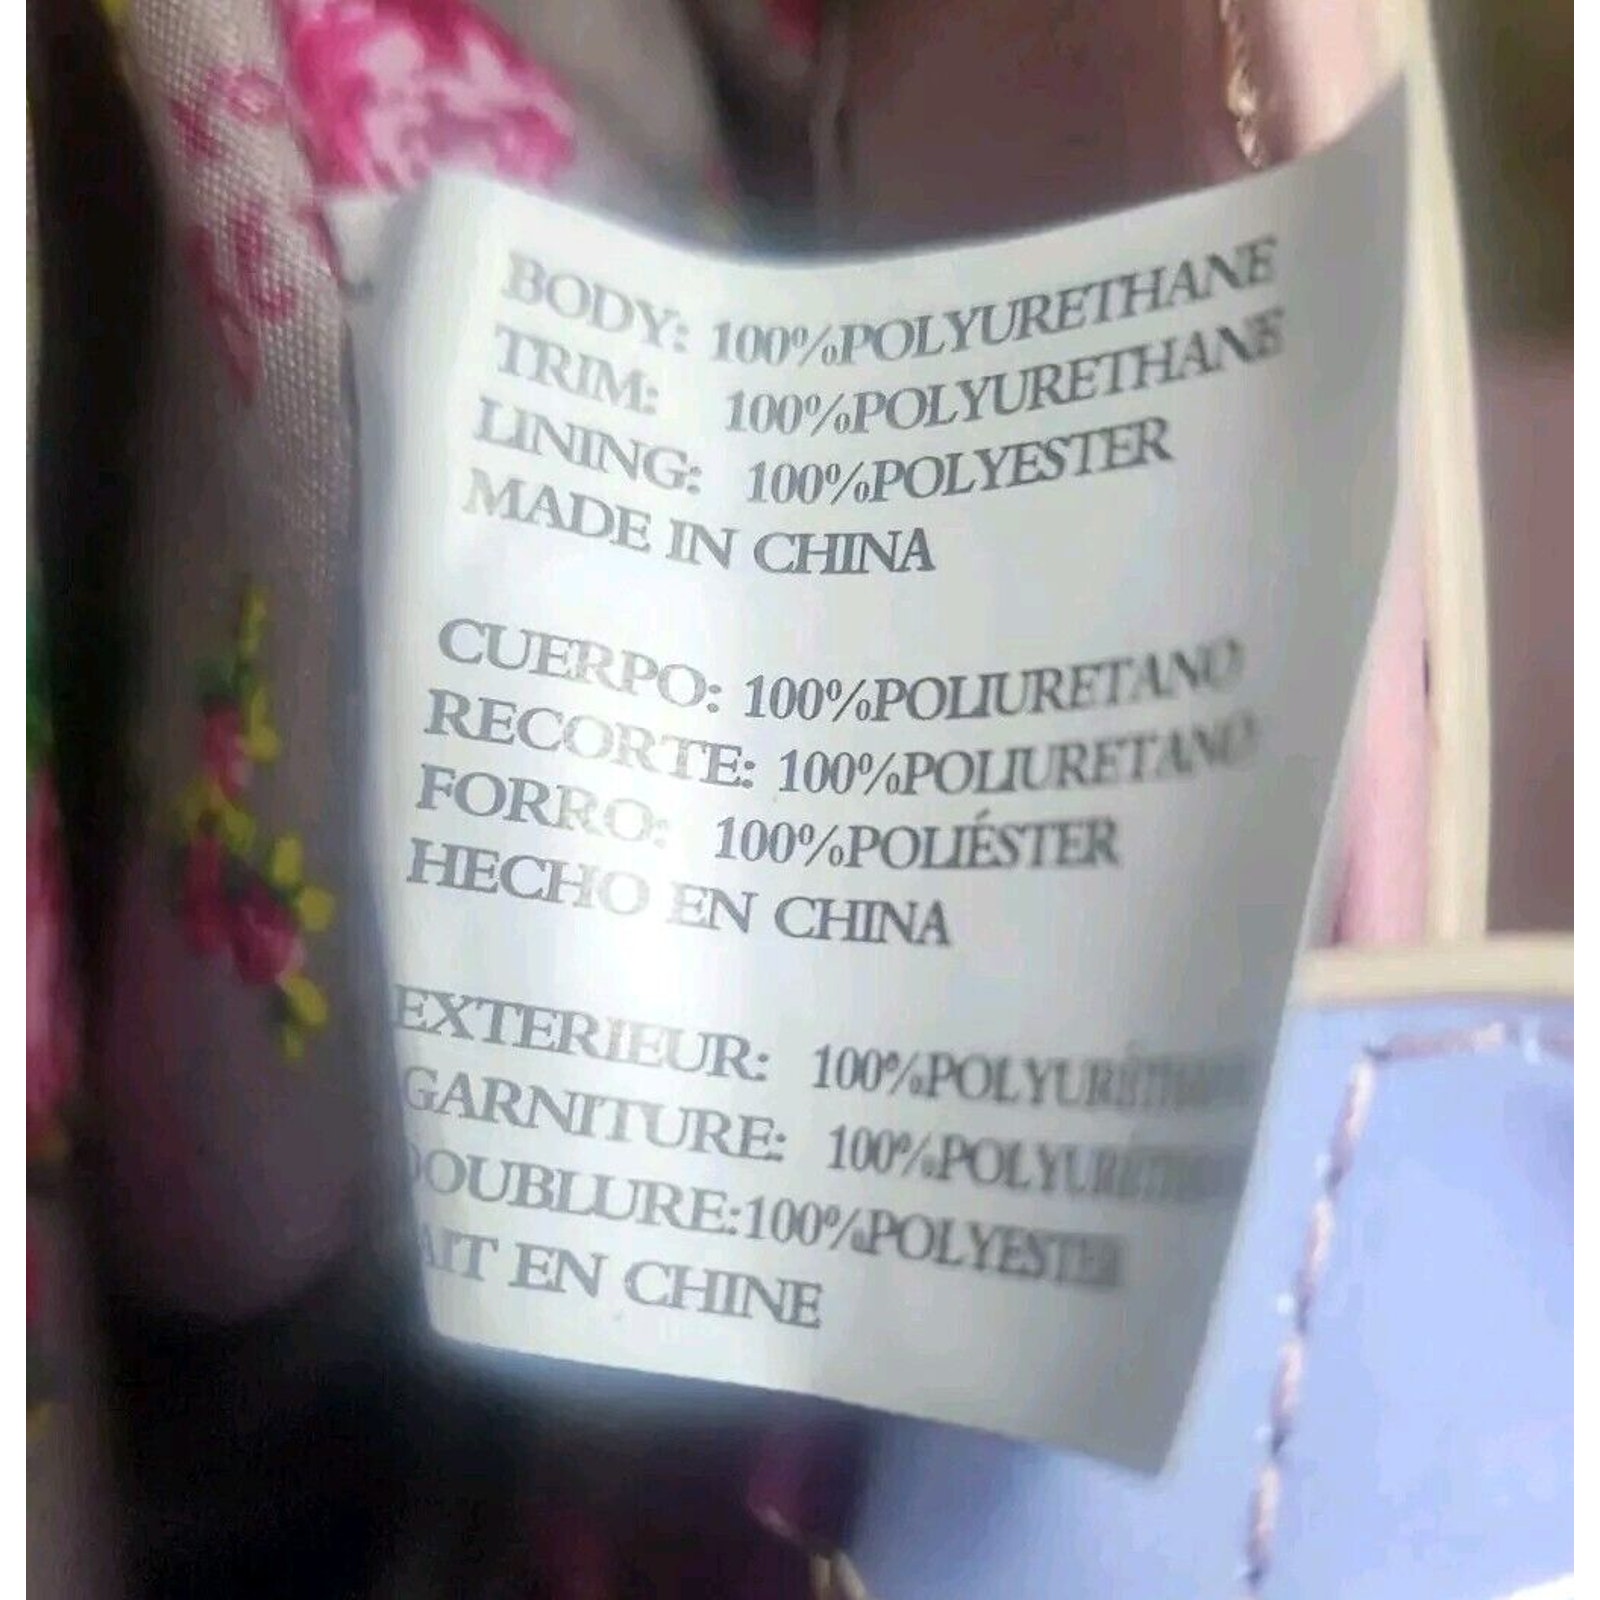 BODY: 100%POLYURETHANE
TRIM: 100%POLYURETHANE
LINING: 100%POLYESTER
MADE IN CHINA
CUERPO: 100%POLIURETANO
RECORTE: 100%POLIURETANO
FORRO: 100%POLIÉSTER
HECHO EN CHINA
EXTERIEUR: 100%
GARNITURE: 100%
DOUBLURE:100%POLYESTER
EN CHINE